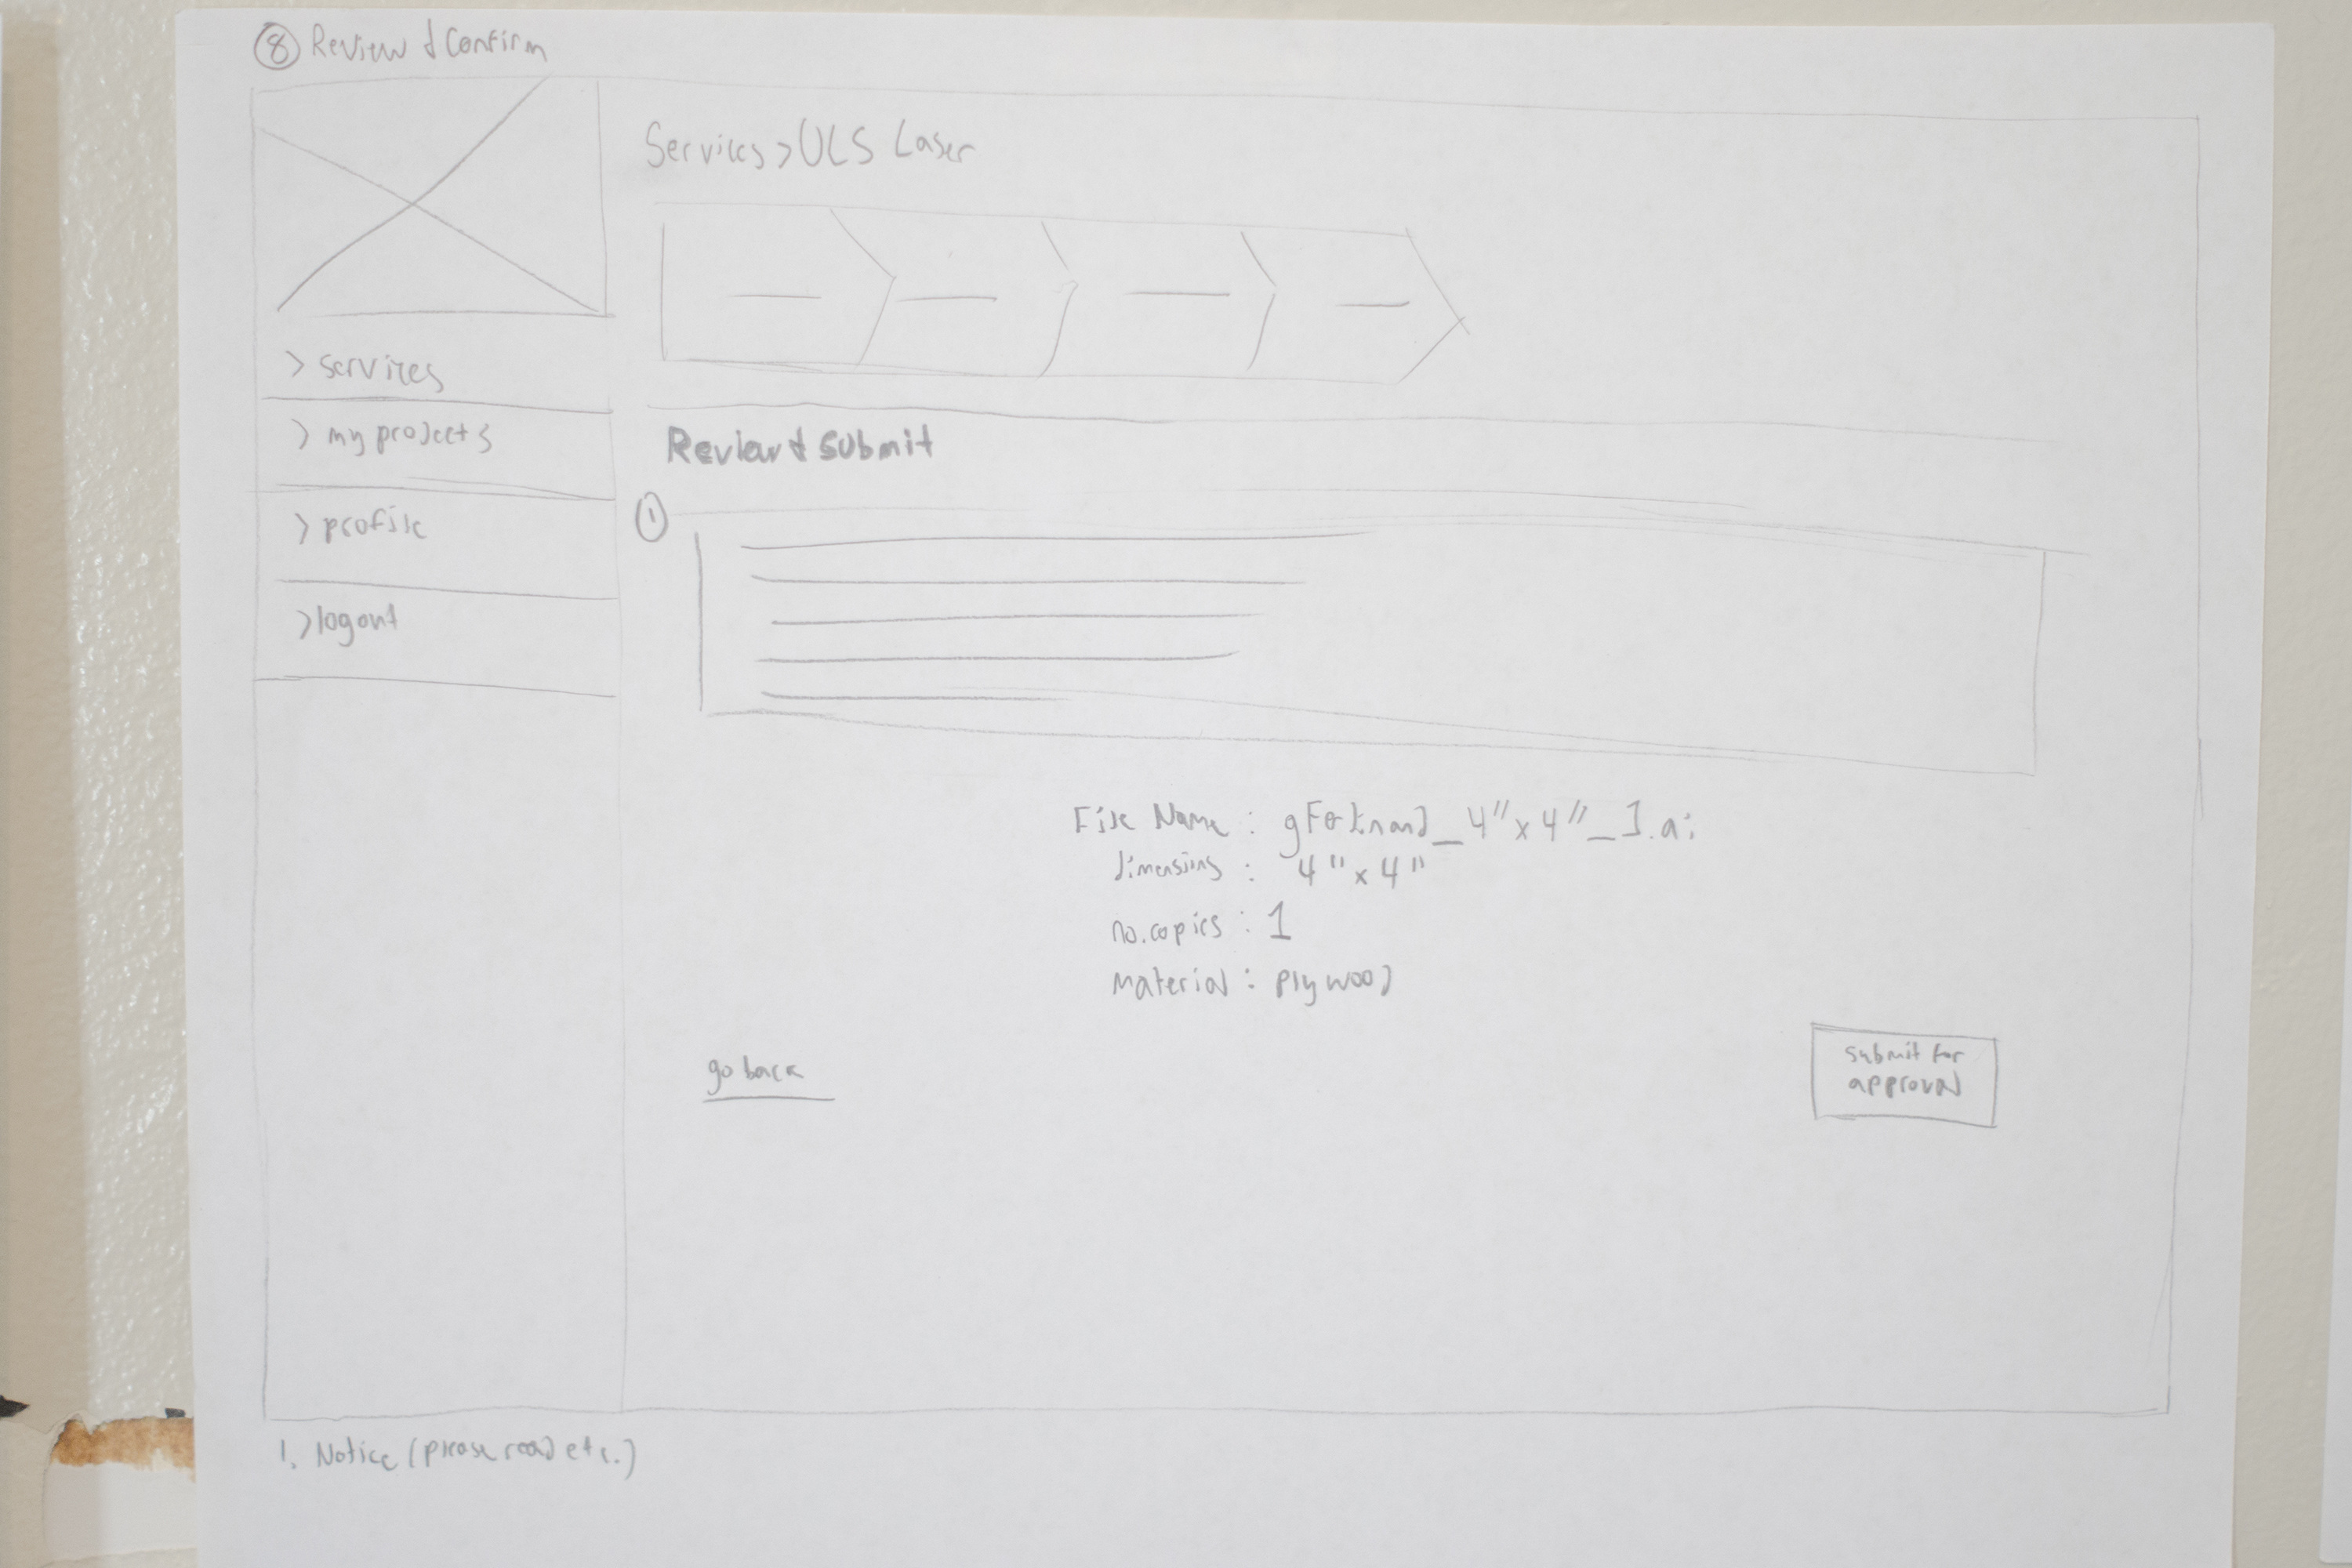 8 Review & Confirm
Services > ULS Laser
> services
> my projects
> profile
> logout
Review & submit
1
File Name : _4"x4"_1.ai
dimensions : 4"x4"
no. copies : 1
material : plywood
go back
submit for
approval
1. Notice (please read etc.)